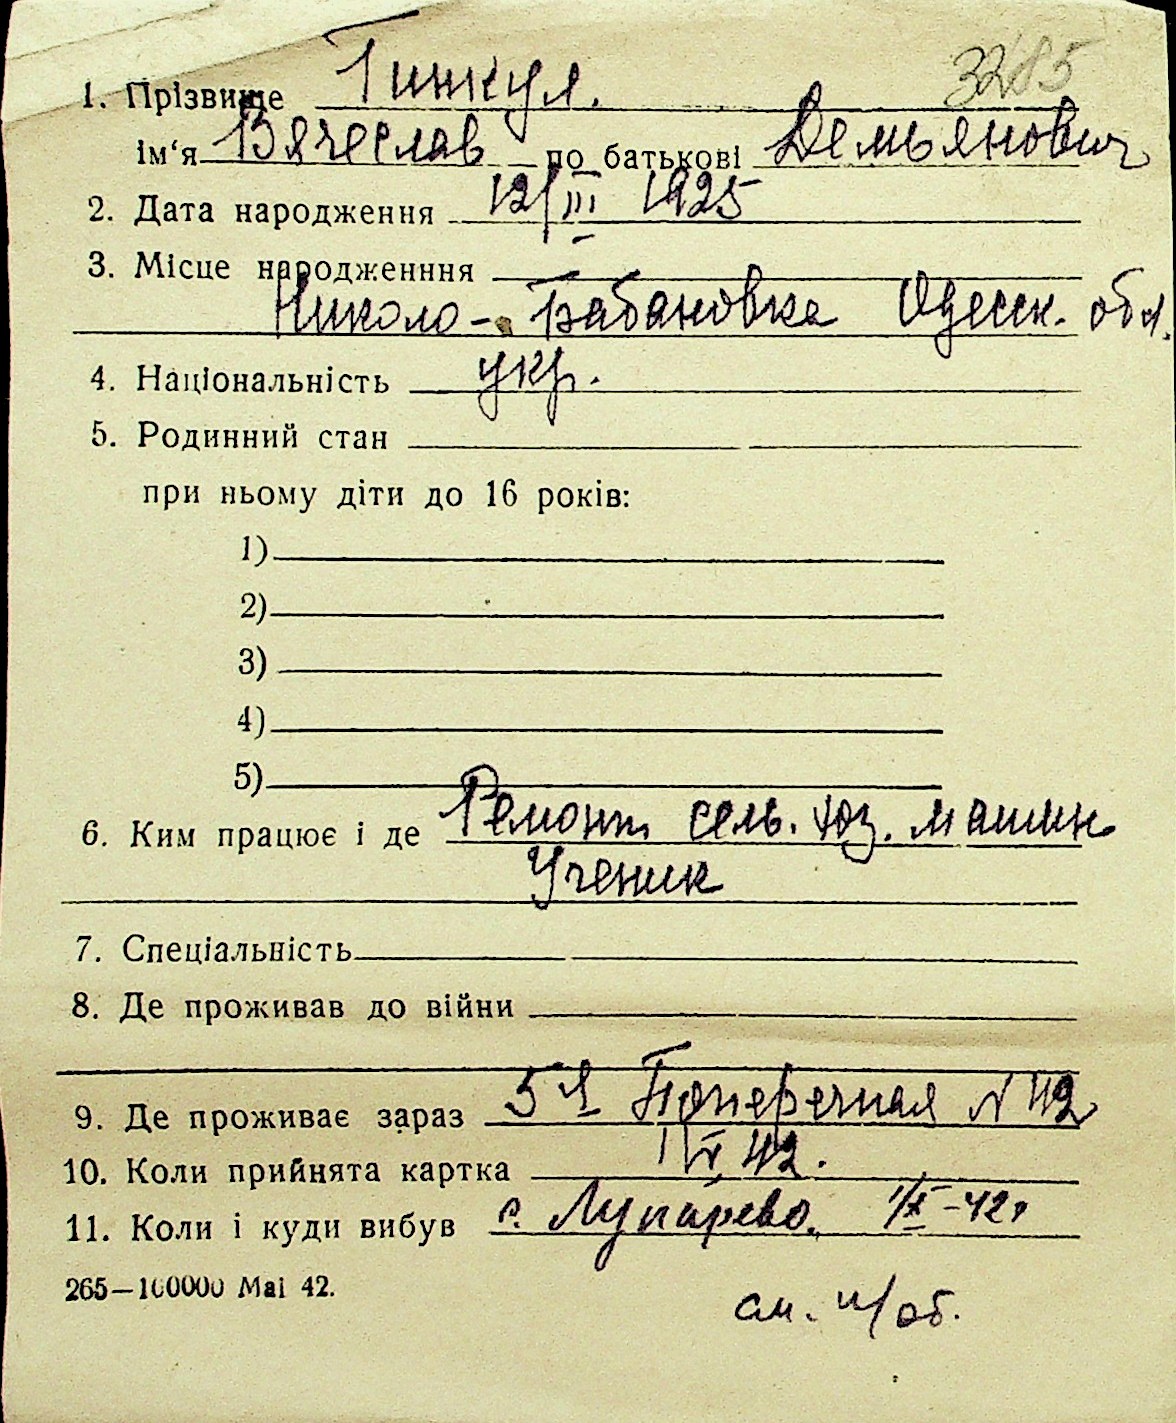 3285
1. Прізвище Гинкул.
ім'я Вячеслав по батькові Демьянович
2. Дата народження 12/III 1925
3. Місце народженння
Николо-Бабановка Одесск. обл.
4. Національність укр.
5. Родинний стан
при ньому діти до 16 років:
1)
2)
3)
4)
5)
6. Ким працює і де Ремонт. сель. хоз. машин
Ученик
7. Спеціальність
8. Де проживав до війни
9. Де проживає зараз 5я Поперечная N 42
10. Коли прийнята картка 42.
11. Коли і куди вибув с. Лупарево. 1/IX-42г
265—100000 Mai 42.
см. н/об.